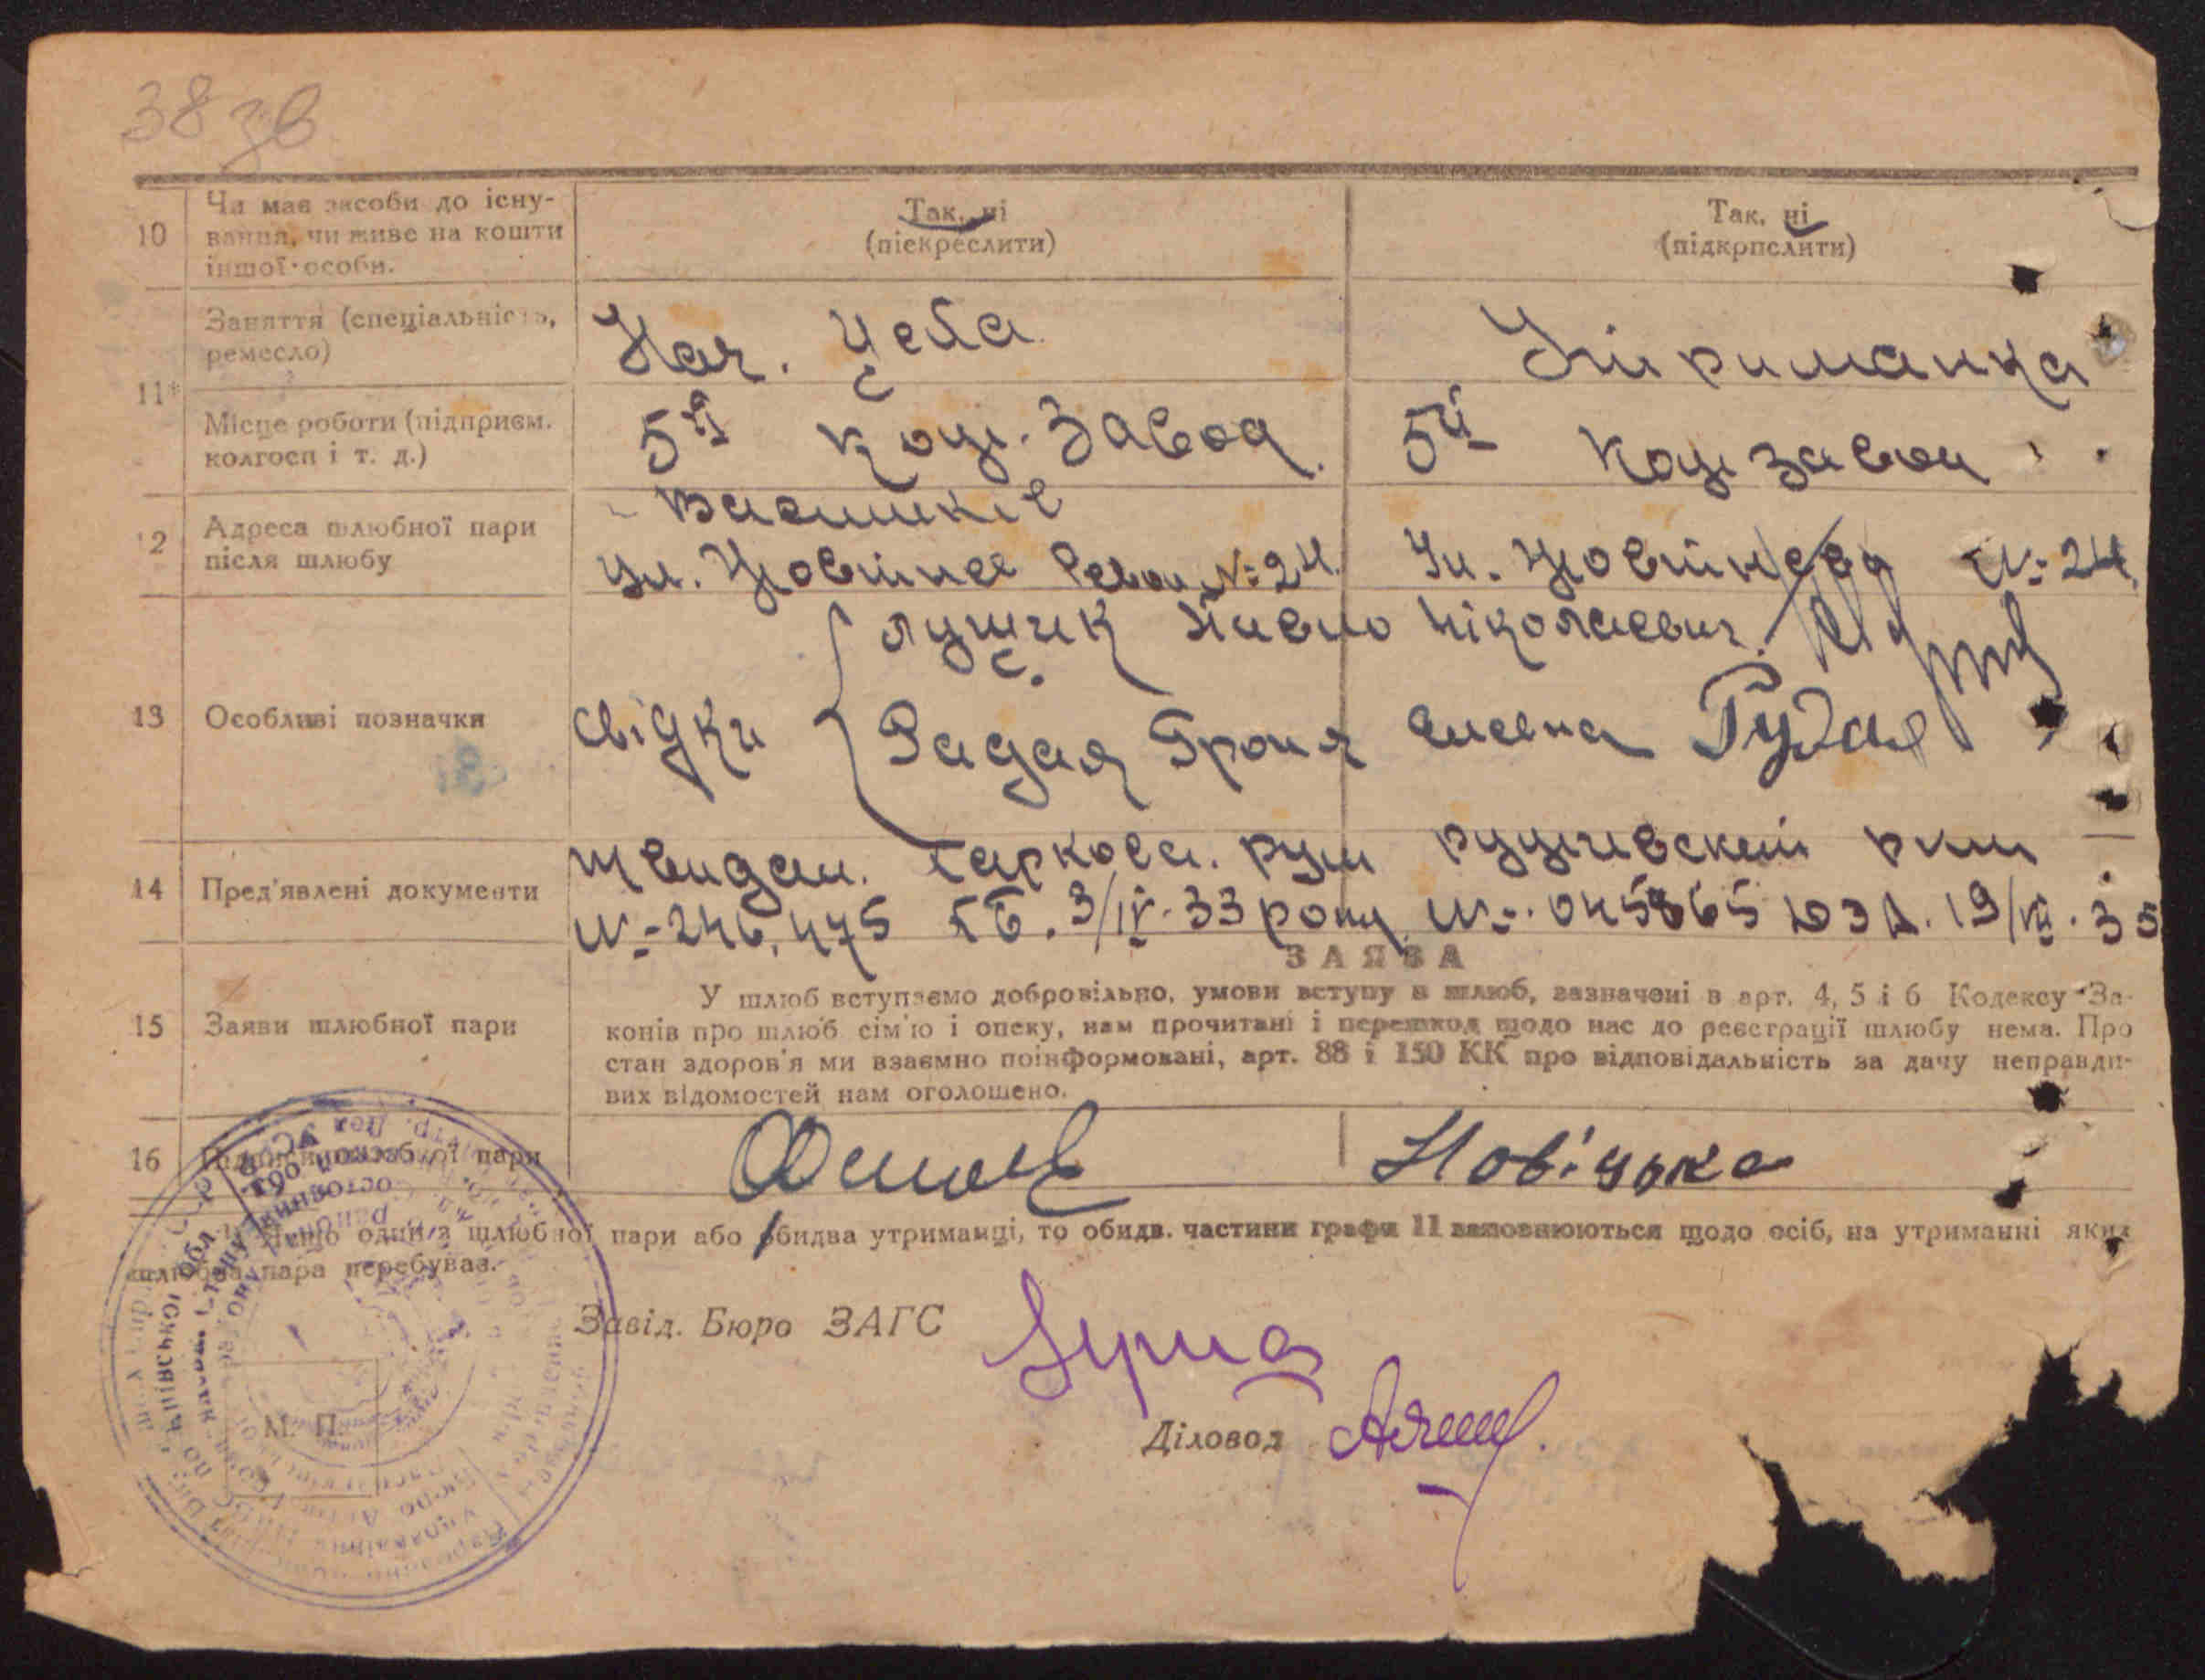 38 зв
10
Чи має засоби до існу-
вання, чи живе на кошти
іншої особи.
Так, ні
(піекреслити)
Так, ні
(підкрпслити)
11*
Заняття (спеціальність,
ремесло)
Нач. Цеха
Утриманка
Місце роботи (підприєм.
колгосп і т. д.)
5й кож. Завод.
5й кож завод
12
Адреса шлюбної пари
після шлюбу
Васильків
ул. Жовтнев Револ №24.
Ул. Жовтнева №24.
13
Особливі позначки
свідки
Лущик Павло Ніколаевич.
Радая Броня
Рудая
14
Пред'явлені документи
№ 246,475 3/IV-33 року
№ 045865 ЮЗД. 19/VII.35
ЗАЯВА
15
Заяви шлюбної пари
У шлюб вступаємо добровільно, умови вступу в шлюб, зазначені в арт. 4, 5 і 6 Кодексу За-
конів про шлюб сім'ю і опеку, нам прочитані і перешкод щодо нас до реєстрації шлюбу нема. Про
стан здоров'я ми взаємно поінформовані, арт. 88 і 150 КК про відповідальність за дачу неправди-
вих відомостей нам оголошено.
16
Підписи шлюбної пари
Новіцька
Якщо один з шлюбної пари або обидва утриманці, то обидв. частини графи 11 заповнюються щодо осіб, на утриманні яких
шлюбна пара перебуває.
Завід. Бюро ЗАГС
М. П.
Діловод